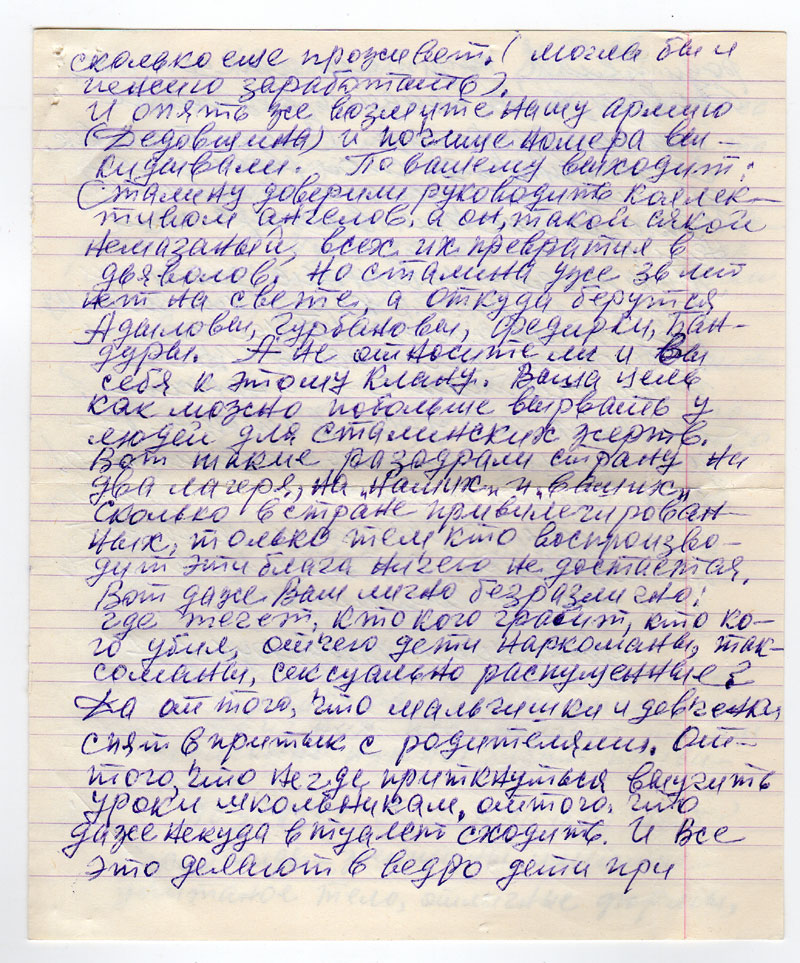 сколько еще проживет. (могла бы и
пенсию заработать).
И опять же возьмите нашу армию
(Дедовщина) и почище номера вы-
кидывали. По вашему выходит:
Сталину доверили руководить коллек-
тивом ангелов, а он, такой сякой
немазаный, всех их превратил в
дьяволов. Но сталина уже 36 лет
нет на свете, а откуда берутся
Адыловы, Гурбановы, Федирки, Бан-
дуры. А не относите ли и Вы
себя к этому клану. Ваша цель
как можно побольше вырвать у
людей для сталинских жертв.
Вот такие разодрали страну на
два лагеря, на „наших" и „ваших"
Сколько в стране привилегирован-
ных, только тем кто воспроизво-
дит эти блага ничего не достается.
Вот даже Вам лично безразлично:
где течет, кто кого грабит, кто ко-
го убил, отчего дети наркоманы, ток-
соманы, сексуально распущенные?
Да от того, что мальчишки и девченки
спят впритык с родителями. От-
того, что негде приткнуться выучить
уроки школьникам, оттого, что
даже некуда в туалет сходить. И Все
это делают в ведро дети при